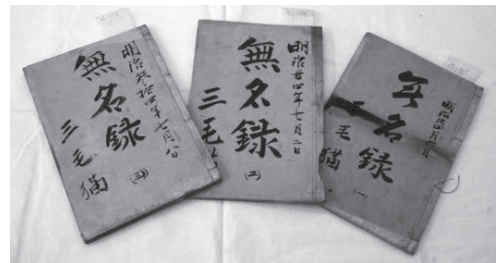 明治参拾四年七月八日
無名録
三毛猫
(三)
明治廿四年七月二日
無名録
三毛
(二)
無名録
三毛猫
一